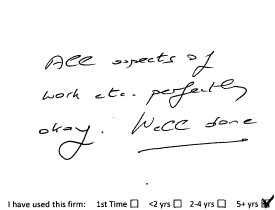 All aspects of
work etc. perfectly
okay. Well done
I have used this firm: 1st Time ☐ <2 yrs ☐ 2-4 yrs ☐ 5+ yrs ☑